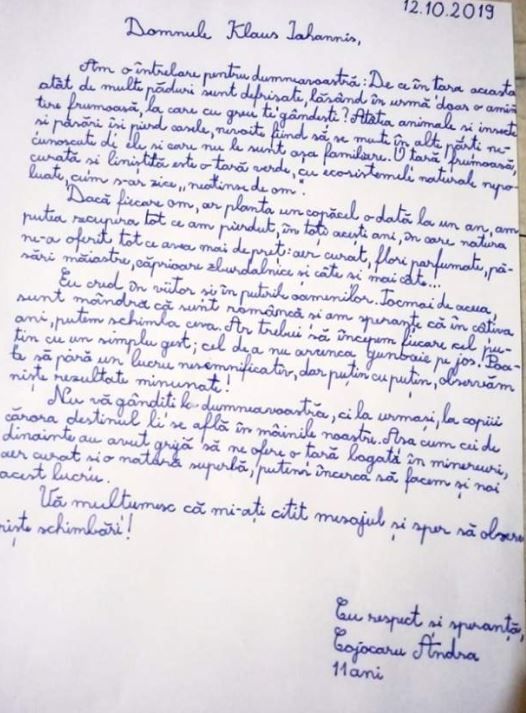 12.10.2019
Domnule Klaus Iohannis,
Am o întrebare pentru dumneavoastră: De ce în țara aceasta
atât de multe păduri sunt defrișate, lăsând în urmă doar o amin
tire frumoasă, la care cu greu te gândești? Atâtea animale și insecte
și păsări își pierd casele, nevoite fiind să se mute în alte părți ne-
cunoscute de ele și care nu le sunt așa familiare. O țară frumoasă,
curată și liniștită este o țară verde, cu ecosistemele naturale nepo-
luate, cum s-ar zice „neatinse de om".
Dacă fiecare om, ar planta un copăcel o dată la un an, am
putea recupera tot ce am pierdut, în toți acești ani, în care natura
ne-a oferit tot ce avea mai de preț: aer curat, flori parfumate, pă-
sări măiastre, căprioare zburdalnice și câte și mai cât...
Eu cred în viitor și în puterile oamenilor. Tocmai de aceea,
sunt mândră că sunt româncă și am speranțe că în câțiva
ani, putem schimba ceva. Ar trebui să începem fiecare cel pu-
țin cu un simplu gest; cel de a nu arunca gunoaie pe jos. Poa-
te să pară un lucru nesemnificativ, dar puțin cu puțin, observăm
niște rezultate minunat!
Nu vă gândiți la dumneavoastră, ci la urmași, la copiii
cărora destinul li se află în mâinile noastre. Așa cum cei de
dinainte au avut grijă să ne ofere o țară bogată în minereuri,
aer curat și o natură superbă, putem încerca să facem și noi
acest lucru.
Vă mulțumesc că mi-ați citit mesajul și sper să obser
niște schimbări!
Cu respect și speranță,
Cojocaru Andra
11 ani